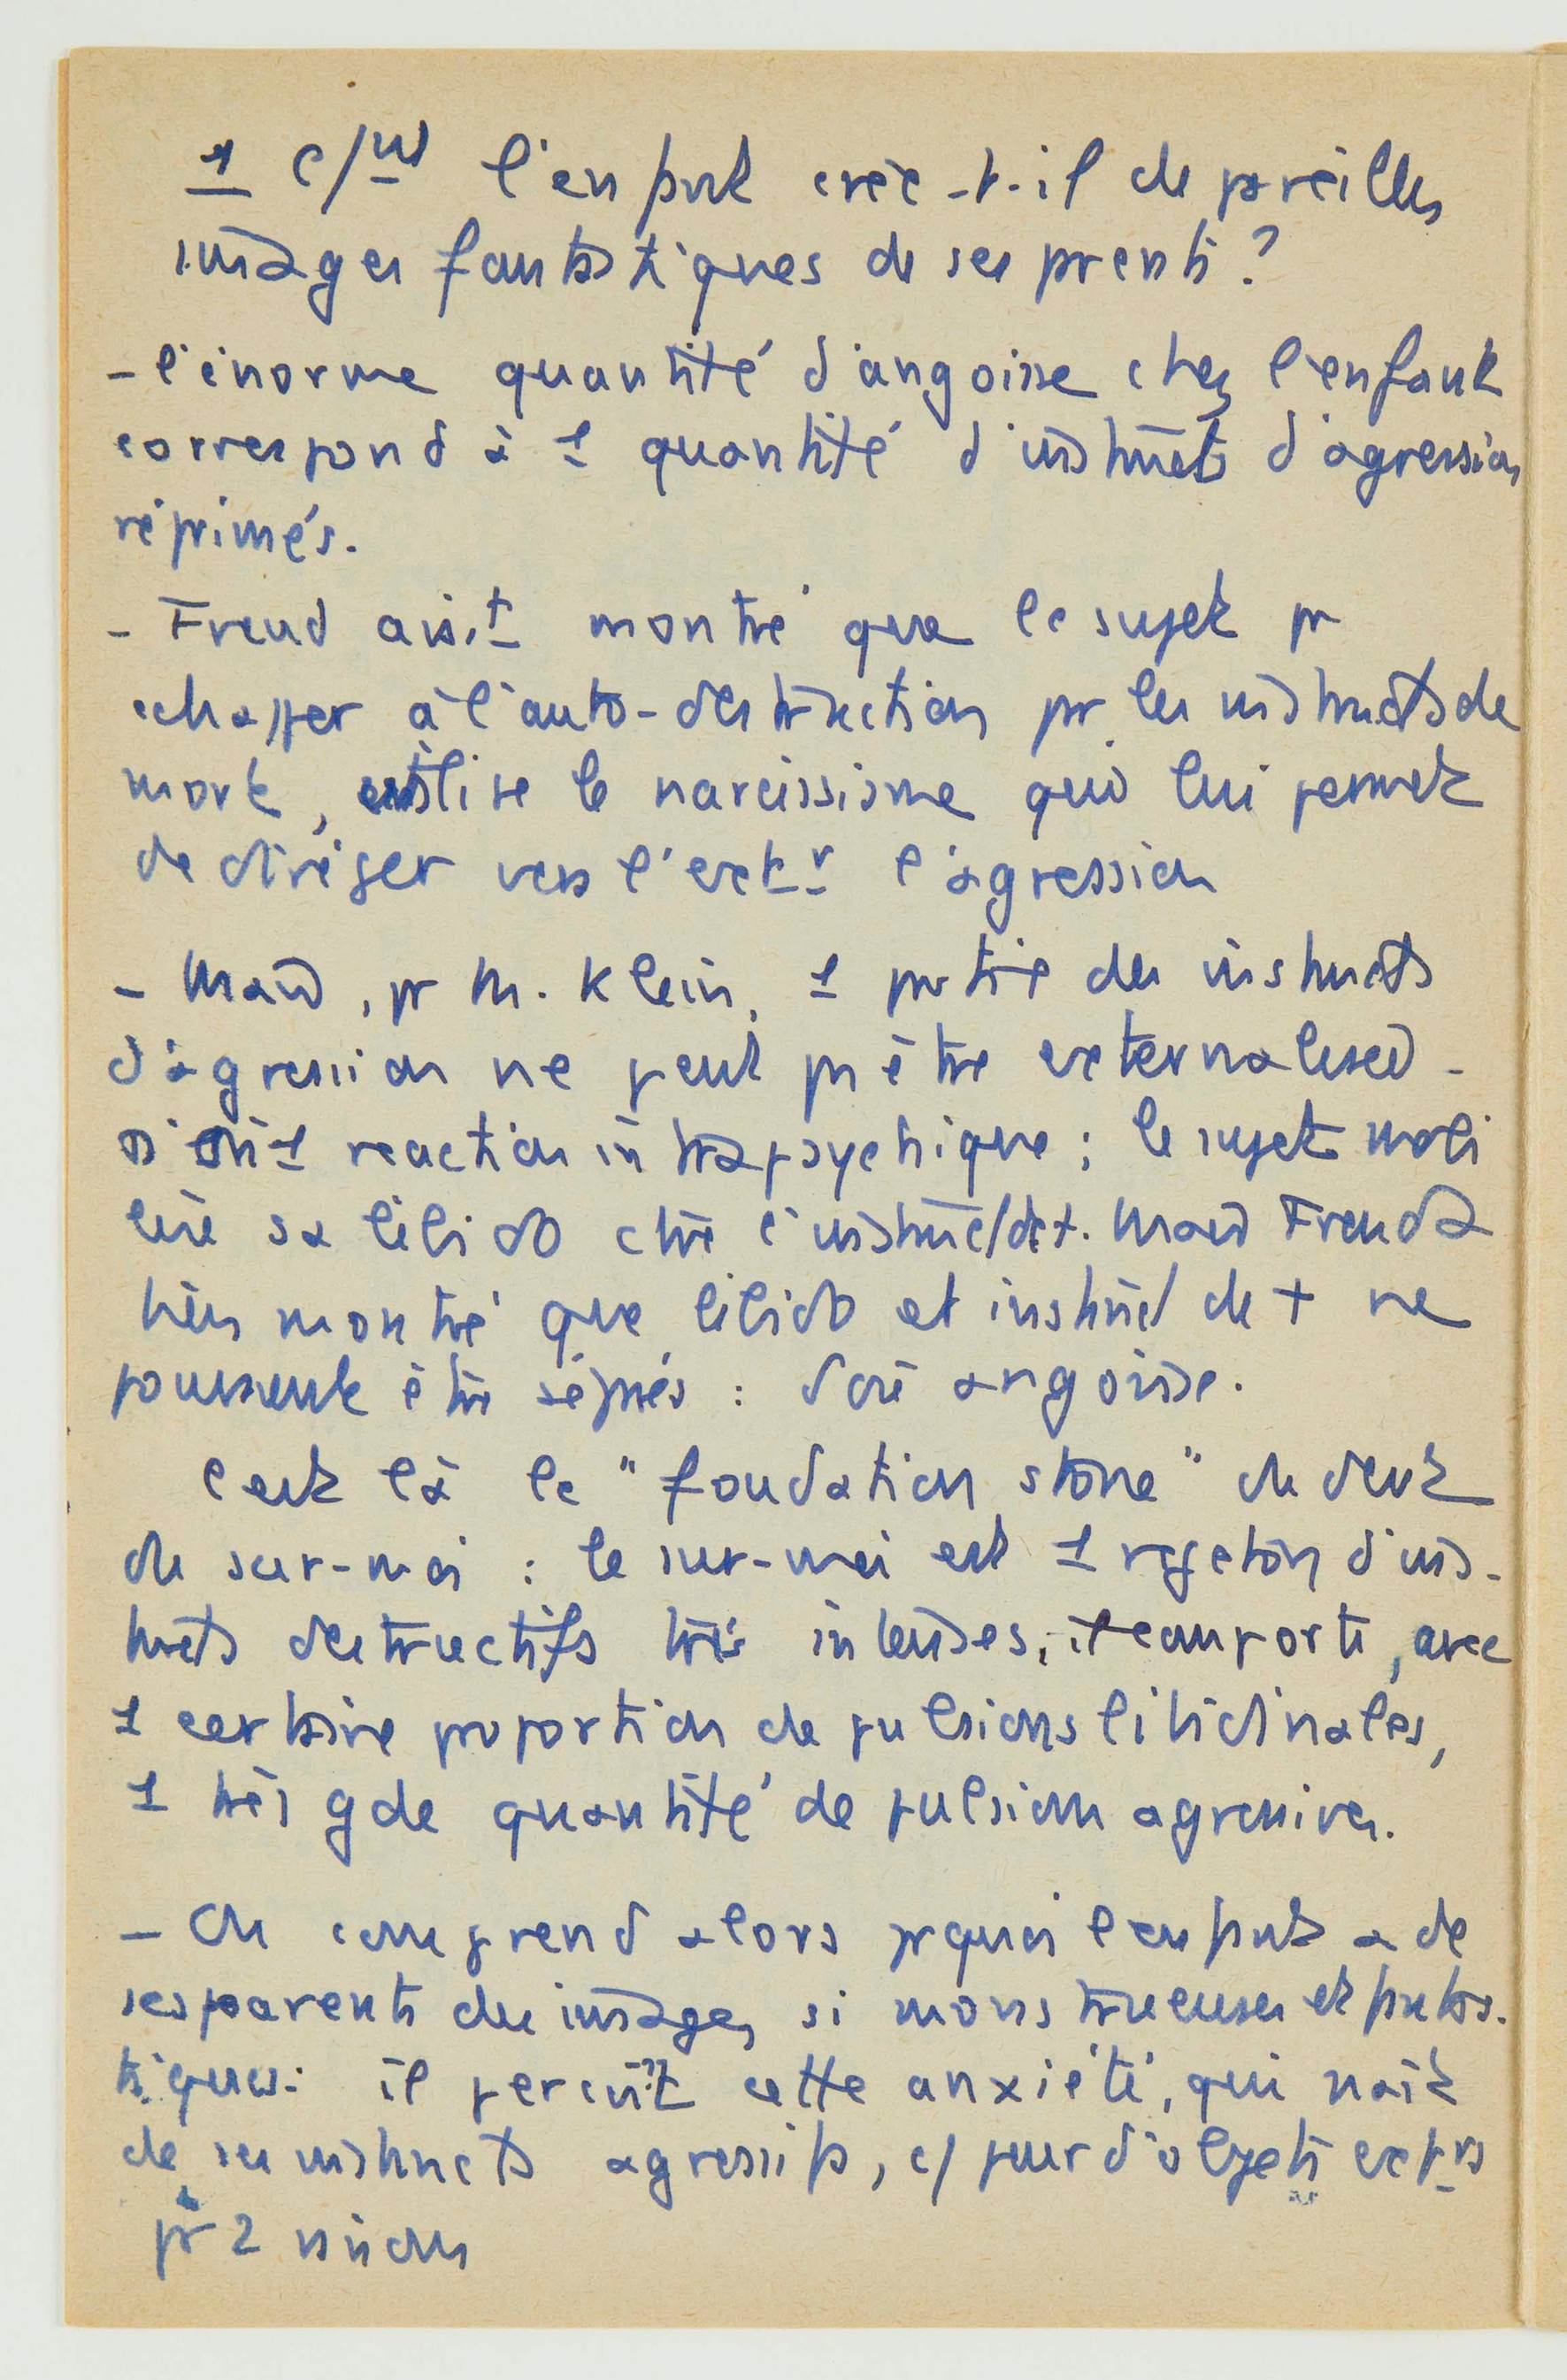 1 c/nt l'enfant crée-t-il de pareilles
images fantastiques de ses prents ?
- l'énorme quantité d'angoisse chez l'enfant
correspond à 1 quantité d'instincts d'agression
réprimés.
- Freud avait montré que le sujet pr
échapper à l'auto-destruction pr les instincts de
mort, utilise le narcissisme qui lui permet
de diriger vers l'extr l'agression
- Mais, pr M. Klein, 1 partie des instincts
d'agression ne peut ps être externalised -
D'où 1 réaction intrapsychique ; le sujet mobi
lise sa libido ctre l'instinct/de +. Mais Freud a
bien montré que libido et instinct de + ne
pouvaient être séprés : d'où angoisse.
C'est là le "foundation stone" du devt
du sur-moi : le sur-moi est 1 rejeton d'ins-
tincts destructifs très intenses, il comporte, avec
1 certaine proportion de pulsions libidinales,
1 très gde quantité de pulsions agressives.
- On comprend alors prquoi l'enfant a de
ses parents des images si monstrueuses et fantas-
tiques : il perçoit cette anxiété, qui naît
de ses instincts agressifs, c/ peur d'objets extrs
pr 2 raisons